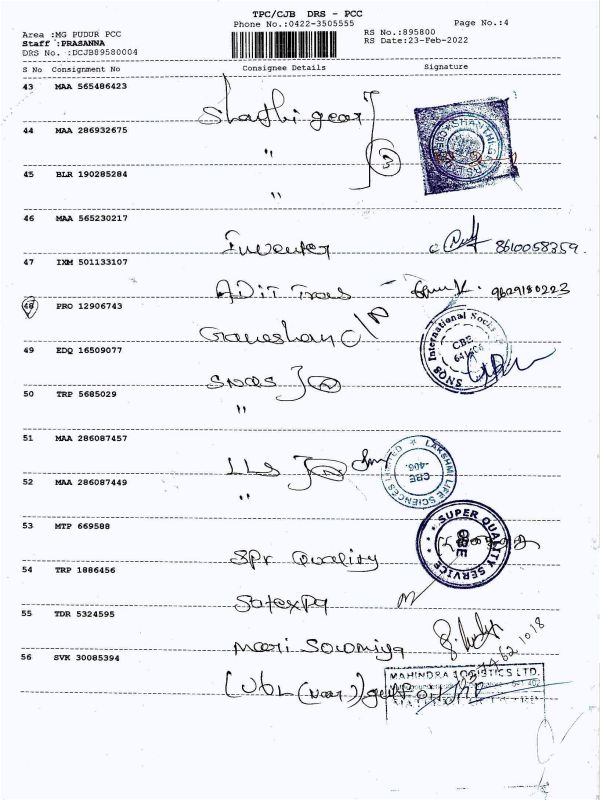 TPC/CJB DRS - PCC
Phone No.:0422-3505555 Page No.:4
Area :MG PUDUR PCC RS No.:895800
Staff :PRASANNA RS Date:23-Feb-2022
DRS No. :DCJB89580004
S No Consignment No Consignee Details Signature
43 MAA 565486423
Shanthi gear
44 MAA 286932675
"
3
45 BLR 190285284
"
46 MAA 565230217
Inventer 8610058359.
47 IXM 501133107
ADIT 9629180223
48 PRO 12906743
Ganeshan C/N
SNQS International Socks
CBE
49 EDQ 16509077
SNQS 2
50 TRP 5685029
"
51 MAA 286087457
LLS 2
LAKSHMI LIFE SCIENCES LIMITED
CBE
-406.
52 MAA 286087449
"
53 MTP 669588
Spr Quality
SUPER QUALITY SERVICE
CBE
54 TRP 1886456
Safexpq
55 TDR 5324595
Maari Sowmiya
56 SVK 30085394
MAHINDRA LOGISTICS LTD.